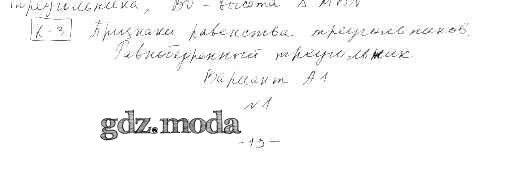 треугольника, ВО - высота Δ MON
К-3 Признаки равенства треугольников.
Равнобедренный треугольник.
Вариант А1
№1
gdz.moda
-13-